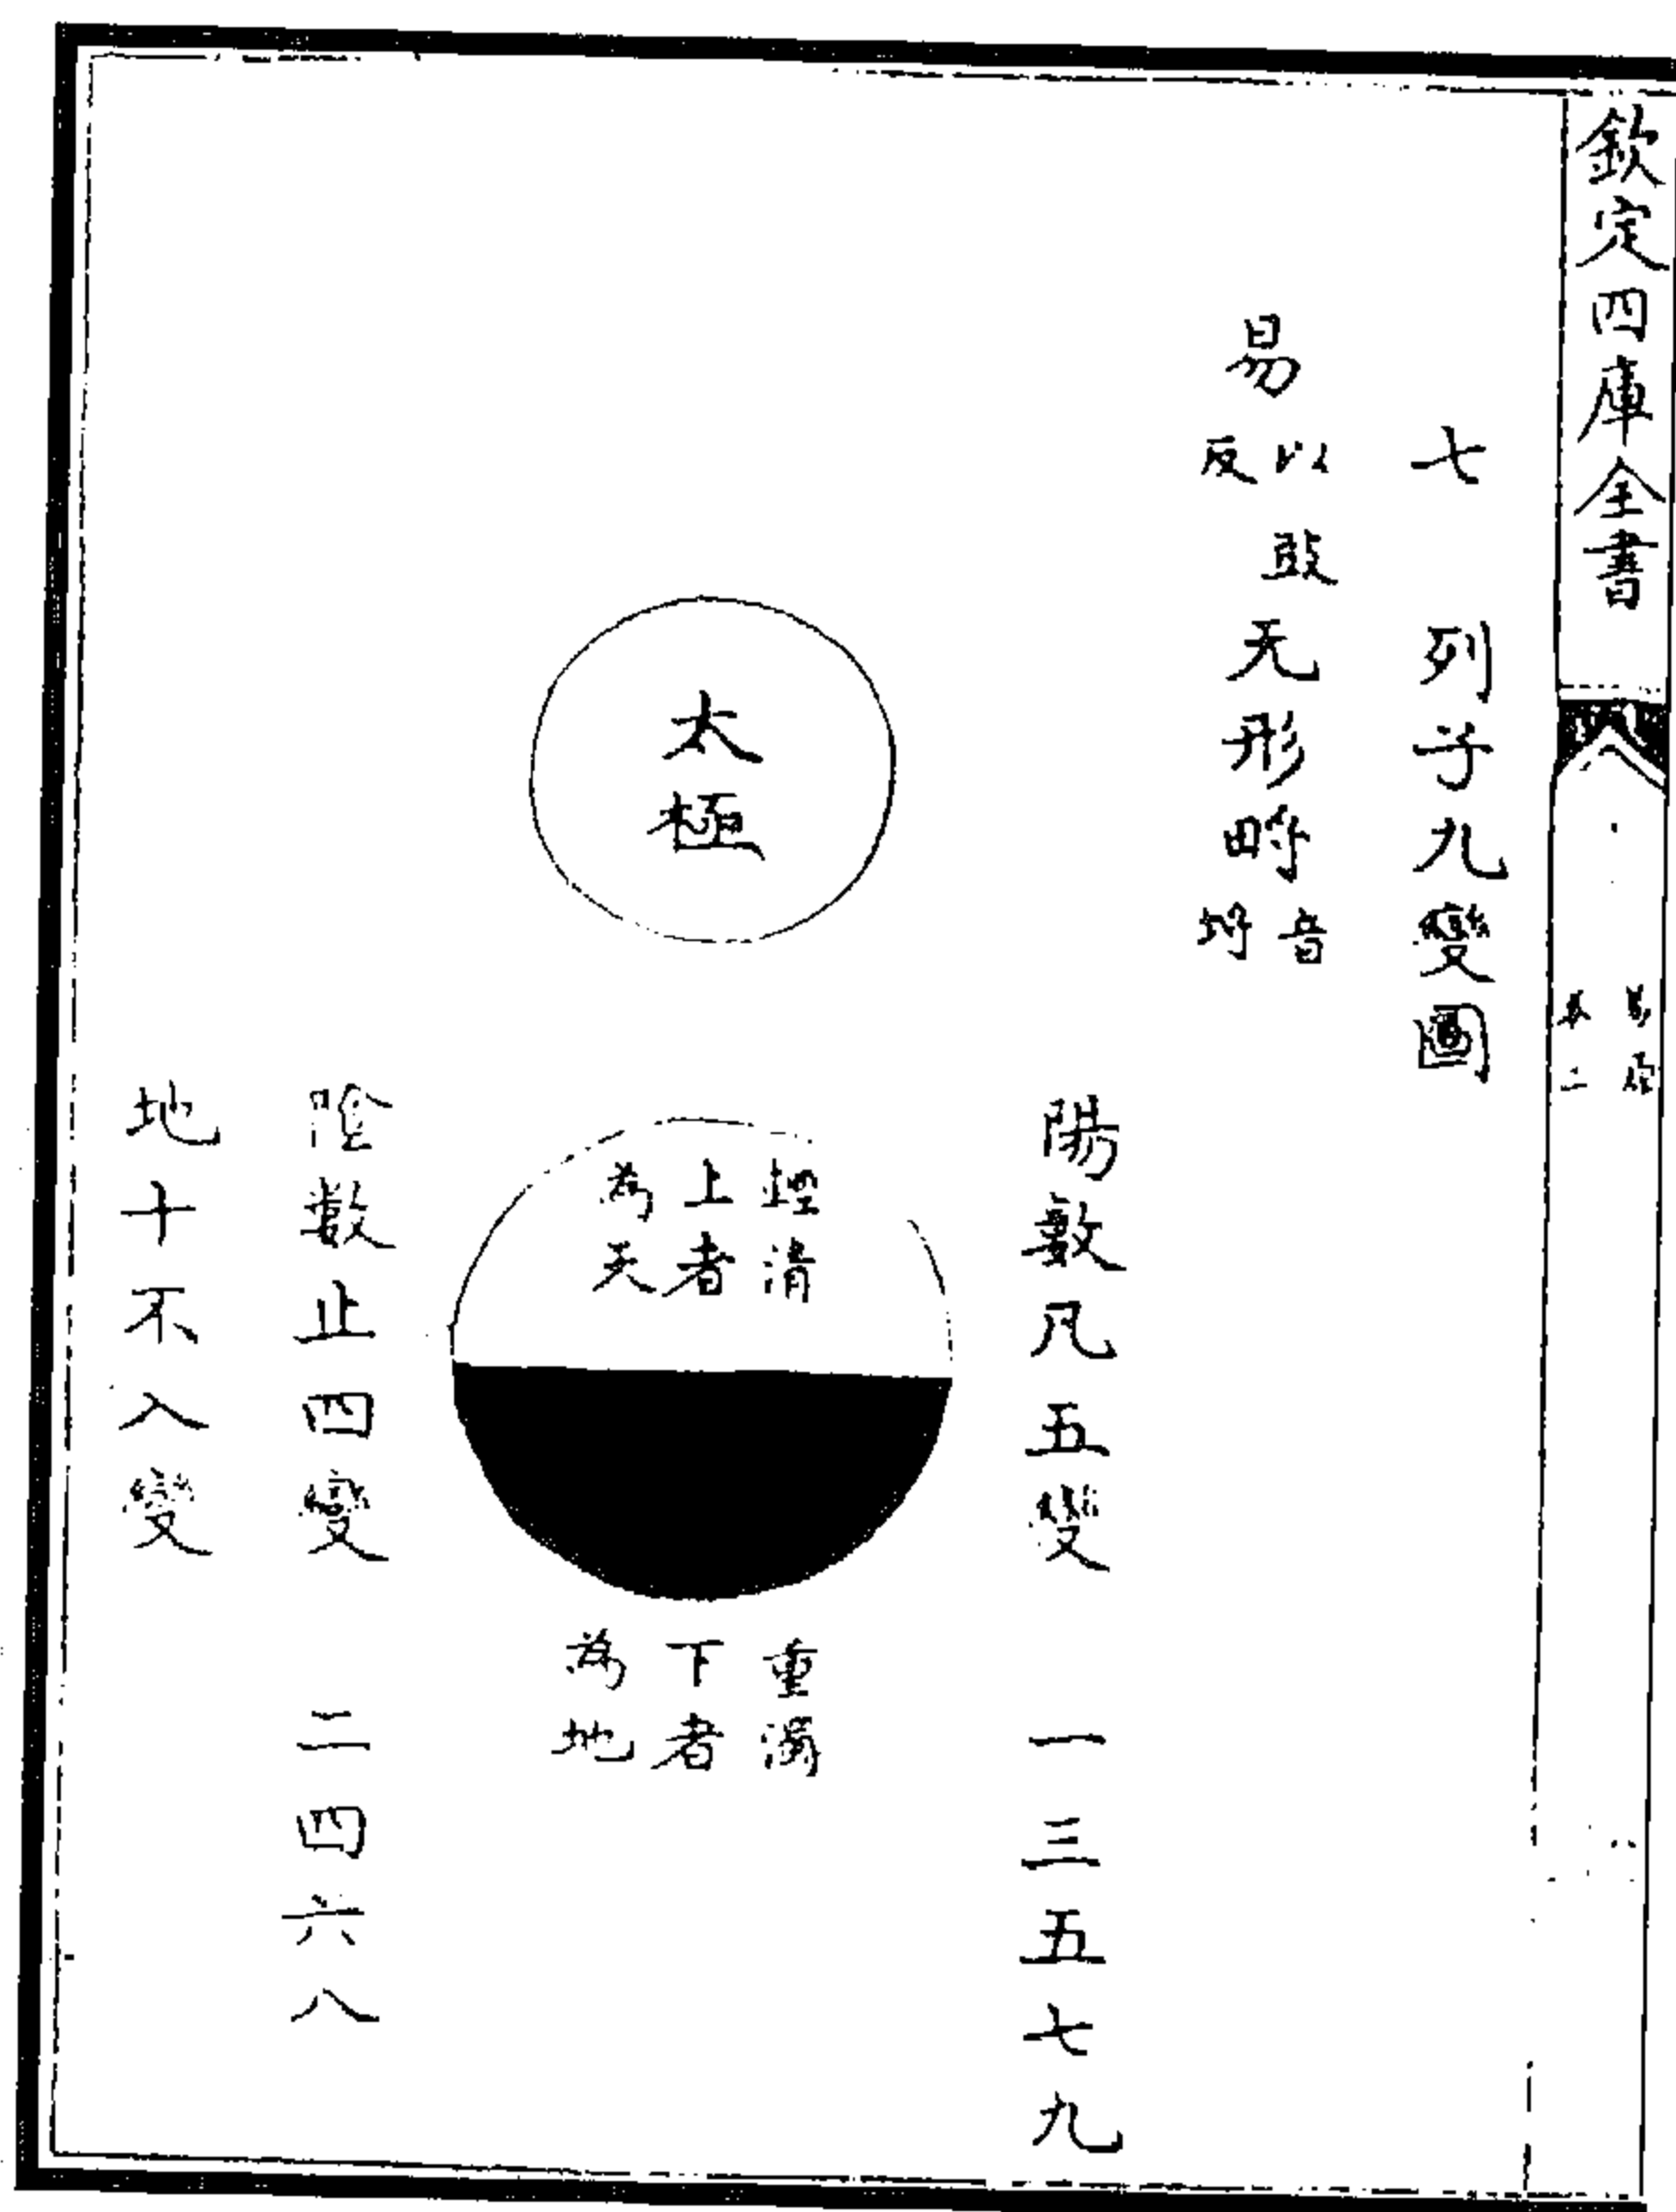 欽定四庫全書
易原
卷二
七 列子九變圖
易以豉反 无形畤音埒
陽數凡五變 一三五七九
太極
輕清
上者
為天
重濁
下者
為地
陰數止四變 二四六八
地十不入變